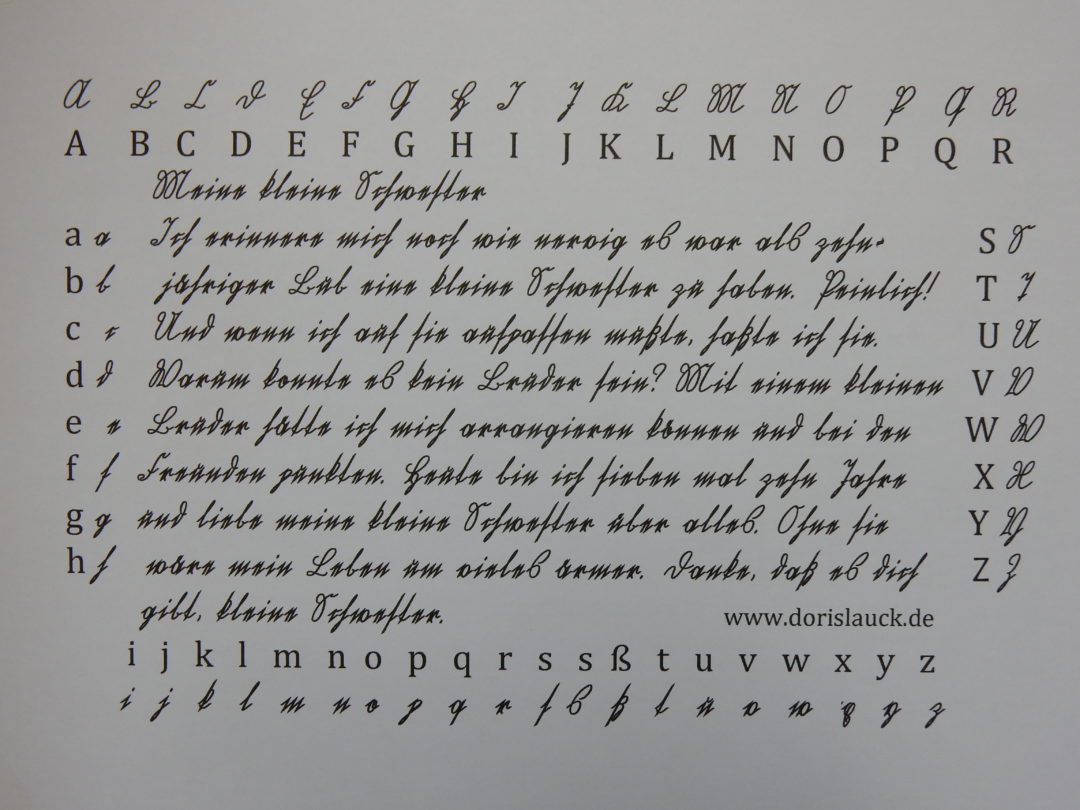 A B C D E F G H I J K L M N O P Q R
A B C D E F G H I J K L M N O P Q R
Meine kleine Schwester
a a Ich erinnere mich noch wie nervig es war als zehn- S S
b b jähriger Bub eine kleine Schwester zu haben. Peinlich! T T
c c Und wenn ich auf sie aufpassen mußte, haßte ich sie. U U
d d Warum konnte es kein Bruder sein? Mit einem kleinen V V
e e Bruder hätte ich mich arrangieren können und bei den W W
f f Freunden punkten. Heute bin ich sieben mal zehn Jahre X X
g g und liebe meine kleine Schwester über alles. Ohne sie Y Y
h h wäre mein Leben um vieles ärmer. Danke, daß es dich Z Z
gibt, kleine Schwester. www.dorislauck.de
i j k l m n o p q r s s ß t u v w x y z
i j k l m n o p q r s s ß t u v w x y z